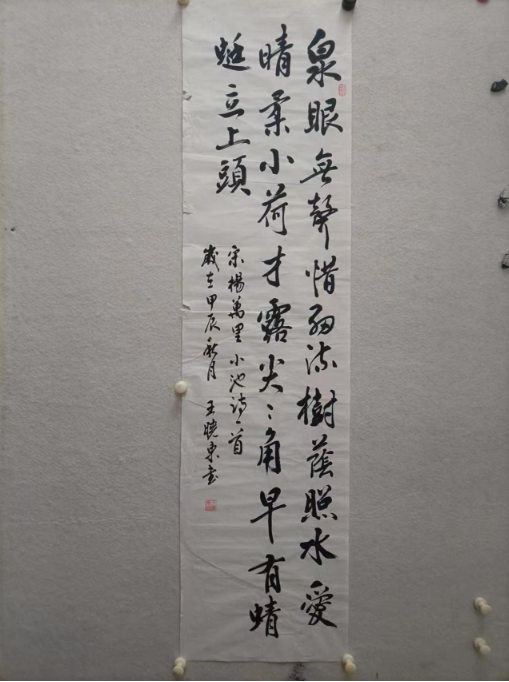 泉眼無聲惜細流樹蔭照水愛
晴柔小荷才露尖〻角早有蜻
蜓立上頭
宋楊萬里小池詩一首
歲在甲辰秋月 王曉東書